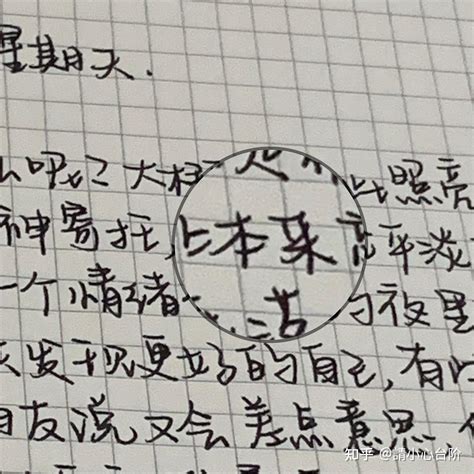 星期天.
呢？大概 照亮
神寄托, 本来 平淡
一个情绪 的夜里
发现更好的自己, 有
朋友说又会差点意思
知乎 @請小心台阶